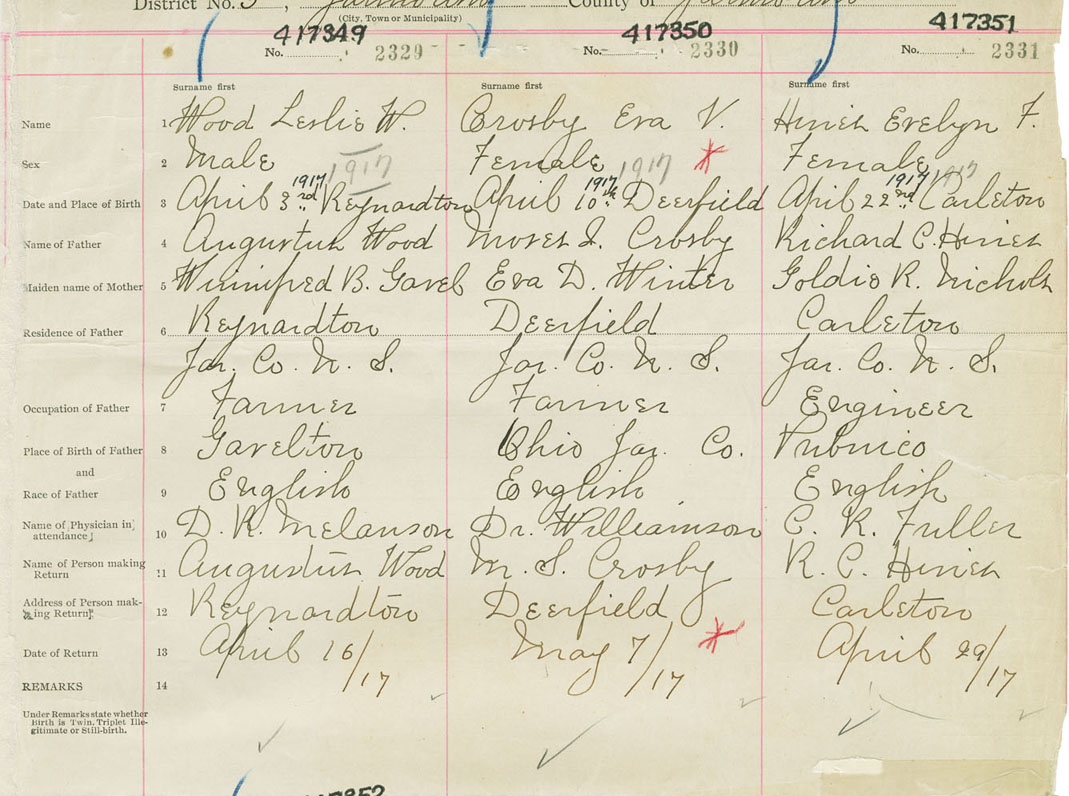 District No. 3, Yarmouth County of Yarmouth
(City, Town or Municipality)
417349 417350 417351
No. 2329 No. 2330 No. 2331
Surname first Surname first Surname first
Name 1 Wood Leslie W. Crosby Eva V. Hines Evelyn F.
Sex 2 Male 1917 Female 1917 Female 1917
1917 1917 1917
Date and Place of Birth 3 April 3rd Reynardton April 10th Deerfield April 22nd Carleton
Name of Father 4 Augustus Wood Moses I. Crosby Richard C. Hines
Maiden name of Mother 5 Winnifred B. Gavel Eva D. Winter Goldie R. Nichols
Residence of Father 6 Reynardton Deerfield Carleton
Yar. Co. N. S. Yar. Co. N. S. Yar. Co. N. S.
Occupation of Father 7 Farmer Farmer Engineer
Place of Birth of Father 8 Gavelton Ohio Yar. Co. Pubnico
and
Race of Father 9 English English English
Name of Physician in attendance 10 D. R. Melanson Dr. Williamson C. K. Fuller
Name of Person making Return 11 Augustus Wood M. S. Crosby R. C. Hines
Address of Person making Return 12 Reynardton Deerfield Carleton
Date of Return 13 April 16/17 May 7/17 April 29/17
REMARKS 14
Under Remarks state whether
Birth is Twin, Triplet Ille-
gitimate or Still-birth.